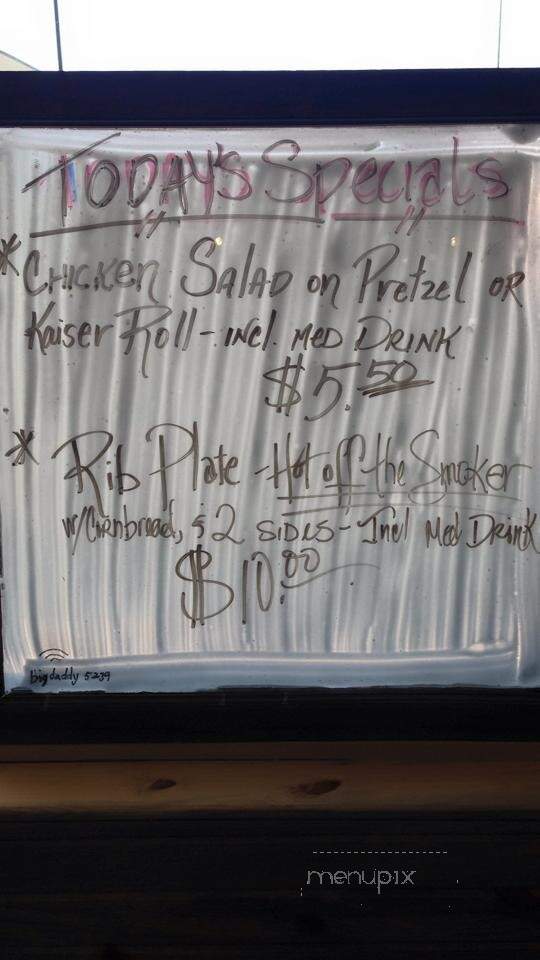 TODAY'S Specials
* CHICKEN SALAD ON Pretzel OR
Kaiser Roll - INCL. MED DRINK
$5.50
* Rib Plate - Hot off the Smoker
w/Cornbread, & 2 SIDES - Incl Med Drink
$10.00
bigdaddy 5239
menupix